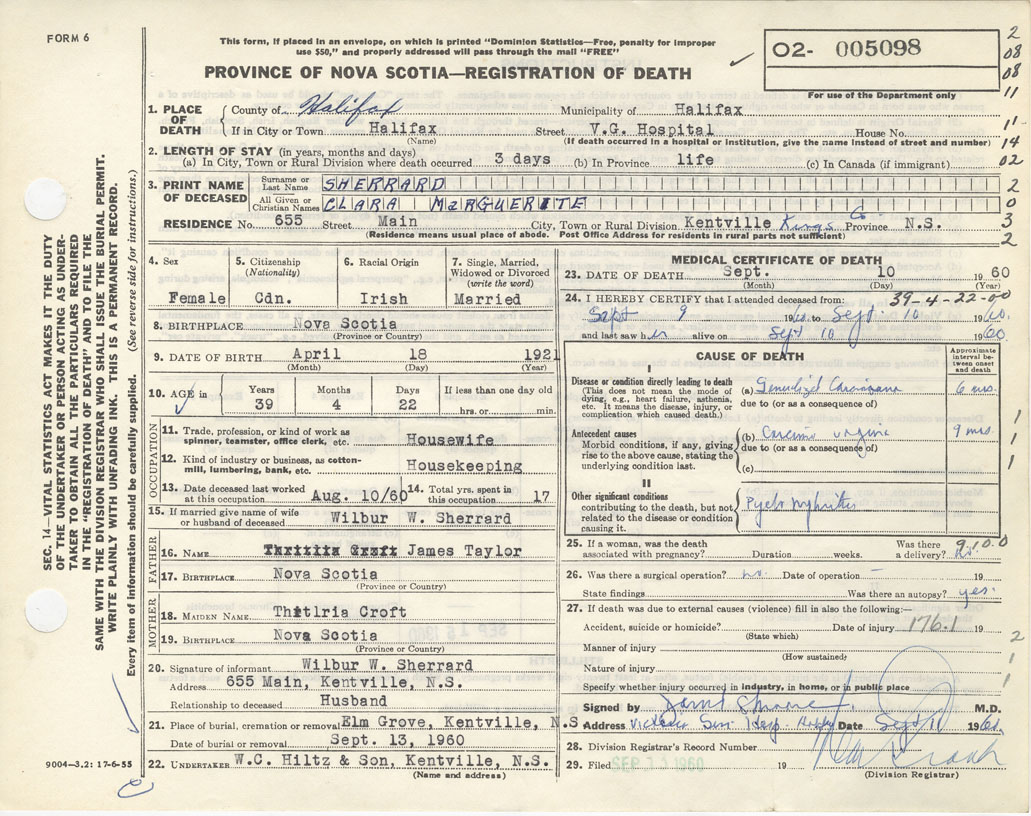 FORM 6
This form, if placed in an envelope, on which is printed "Dominion Statistics—Free, penalty for improper
use $50," and properly addressed will pass through the mail "FREE"
02- 005098
For use of the Department only
2
08
08
11
11
14
02
2
0
3
2
PROVINCE OF NOVA SCOTIA—REGISTRATION OF DEATH
1. PLACE OF DEATH
County of Halifax Municipality of Halifax
If in City or Town Halifax Street V.G. Hospital House No.
(Name) (If death occurred in a hospital or institution, give the name instead of street and number)
2. LENGTH OF STAY (in years, months and days)
(a) In City, Town or Rural Division where death occurred 3 days (b) In Province life (c) In Canada (if immigrant)
3. PRINT NAME OF DECEASED
Surname or Last Name SHERRARD
All Given or Christian Names CLARA MARGUERITE
RESIDENCE No. 655 Street Main City, Town or Rural Division Kentville Kings Co Province N.S.
(Residence means usual place of abode. Post Office Address for residents in rural parts not sufficient)
4. Sex
Female
5. Citizenship
(Nationality)
Cdn.
6. Racial Origin
Irish
7. Single, Married, Widowed or Divorced
(write the word)
Married
8. BIRTHPLACE Nova Scotia
(Province or Country)
9. DATE OF BIRTH April 18 1921
(Month) (Day) (Year)
10. AGE in
Years Months Days If less than one day old
39 4 22 hrs. or min.
OCCUPATION
11. Trade, profession, or kind of work as
spinner, teamster, office clerk, etc. Housewife
12. Kind of industry or business, as cotton-
mill, lumbering, bank, etc. Housekeeping
13. Date deceased last worked
at this occupation Aug. 10/60
14. Total yrs. spent in
this occupation 17
15. If married give name of wife
or husband of deceased Wilbur W. Sherrard
FATHER
16. NAME James Taylor
17. BIRTHPLACE Nova Scotia
(Province or Country)
MOTHER
18. MAIDEN NAME Thitlria Croft
19. BIRTHPLACE Nova Scotia
(Province or Country)
20. Signature of informant Wilbur W. Sherrard
Address 655 Main, Kentville, N.S.
Relationship to deceased Husband
21. Place of burial, cremation or removal Elm Grove, Kentville, N.S
Date of burial or removal Sept. 13, 1960
22. UNDERTAKER W.C. Hiltz & Son, Kentville, N.S.
(Name and address)
MEDICAL CERTIFICATE OF DEATH
23. DATE OF DEATH Sept. 10 1960
(Month) (Day) (Year)
39-4-22-00
24. I HEREBY CERTIFY that I attended deceased from:
Sept 9 1960 to Sept. 10 1960.
and last saw her alive on Sept 10 1960.
CAUSE OF DEATH
Approximate interval between onset and death
I
Disease or condition directly leading to death
(This does not mean the mode of
dying, e.g., heart failure, asthenia,
etc. It means the disease, injury, or
complication which caused death.)
(a) Generalized Carcinoma 6 mos.
due to (or as a consequence of)
Antecedent causes
Morbid conditions, if any, giving
rise to the above cause, stating the
underlying condition last.
(b) Carcinoma vagina 9 mos.
due to (or as a consequence of)
(c)
II
Other significant conditions
contributing to the death, but not
related to the disease or condition
causing it.
Pyelonephritis
1
1
1
25. If a woman, was the death
associated with pregnancy? Duration weeks. Was there
a delivery? no.
910.0
26. Was there a surgical operation? no. Date of operation – 19
State findings Was there an autopsy? yes.
27. If death was due to external causes (violence) fill in also the following:—
Accident, suicide or homicide? Date of injury 176.1 19
(State which)
Manner of injury
(How sustained)
Nature of injury
Specify whether injury occurred in industry, in home, or in public place
2
1
1
Signed by M.D.
Address Date Sept 11 1960.
28. Division Registrar's Record Number
29. Filed SEP 1960 19
(Division Registrar)
SEC. 14—VITAL STATISTICS ACT MAKES IT THE DUTY
OF THE UNDERTAKER OR PERSON ACTING AS UNDER-
TAKER TO OBTAIN ALL THE PARTICULARS REQUIRED
IN THE "REGISTRATION OF DEATH" AND TO FILE THE
SAME WITH THE DIVISION REGISTRAR WHO SHALL ISSUE THE BURIAL PERMIT.
WRITE PLAINLY WITH UNFADING INK. THIS IS A PERMANENT RECORD.
Every item of information should be carefully supplied. (See reverse side for instructions.)
9004—3.2: 17-6-55